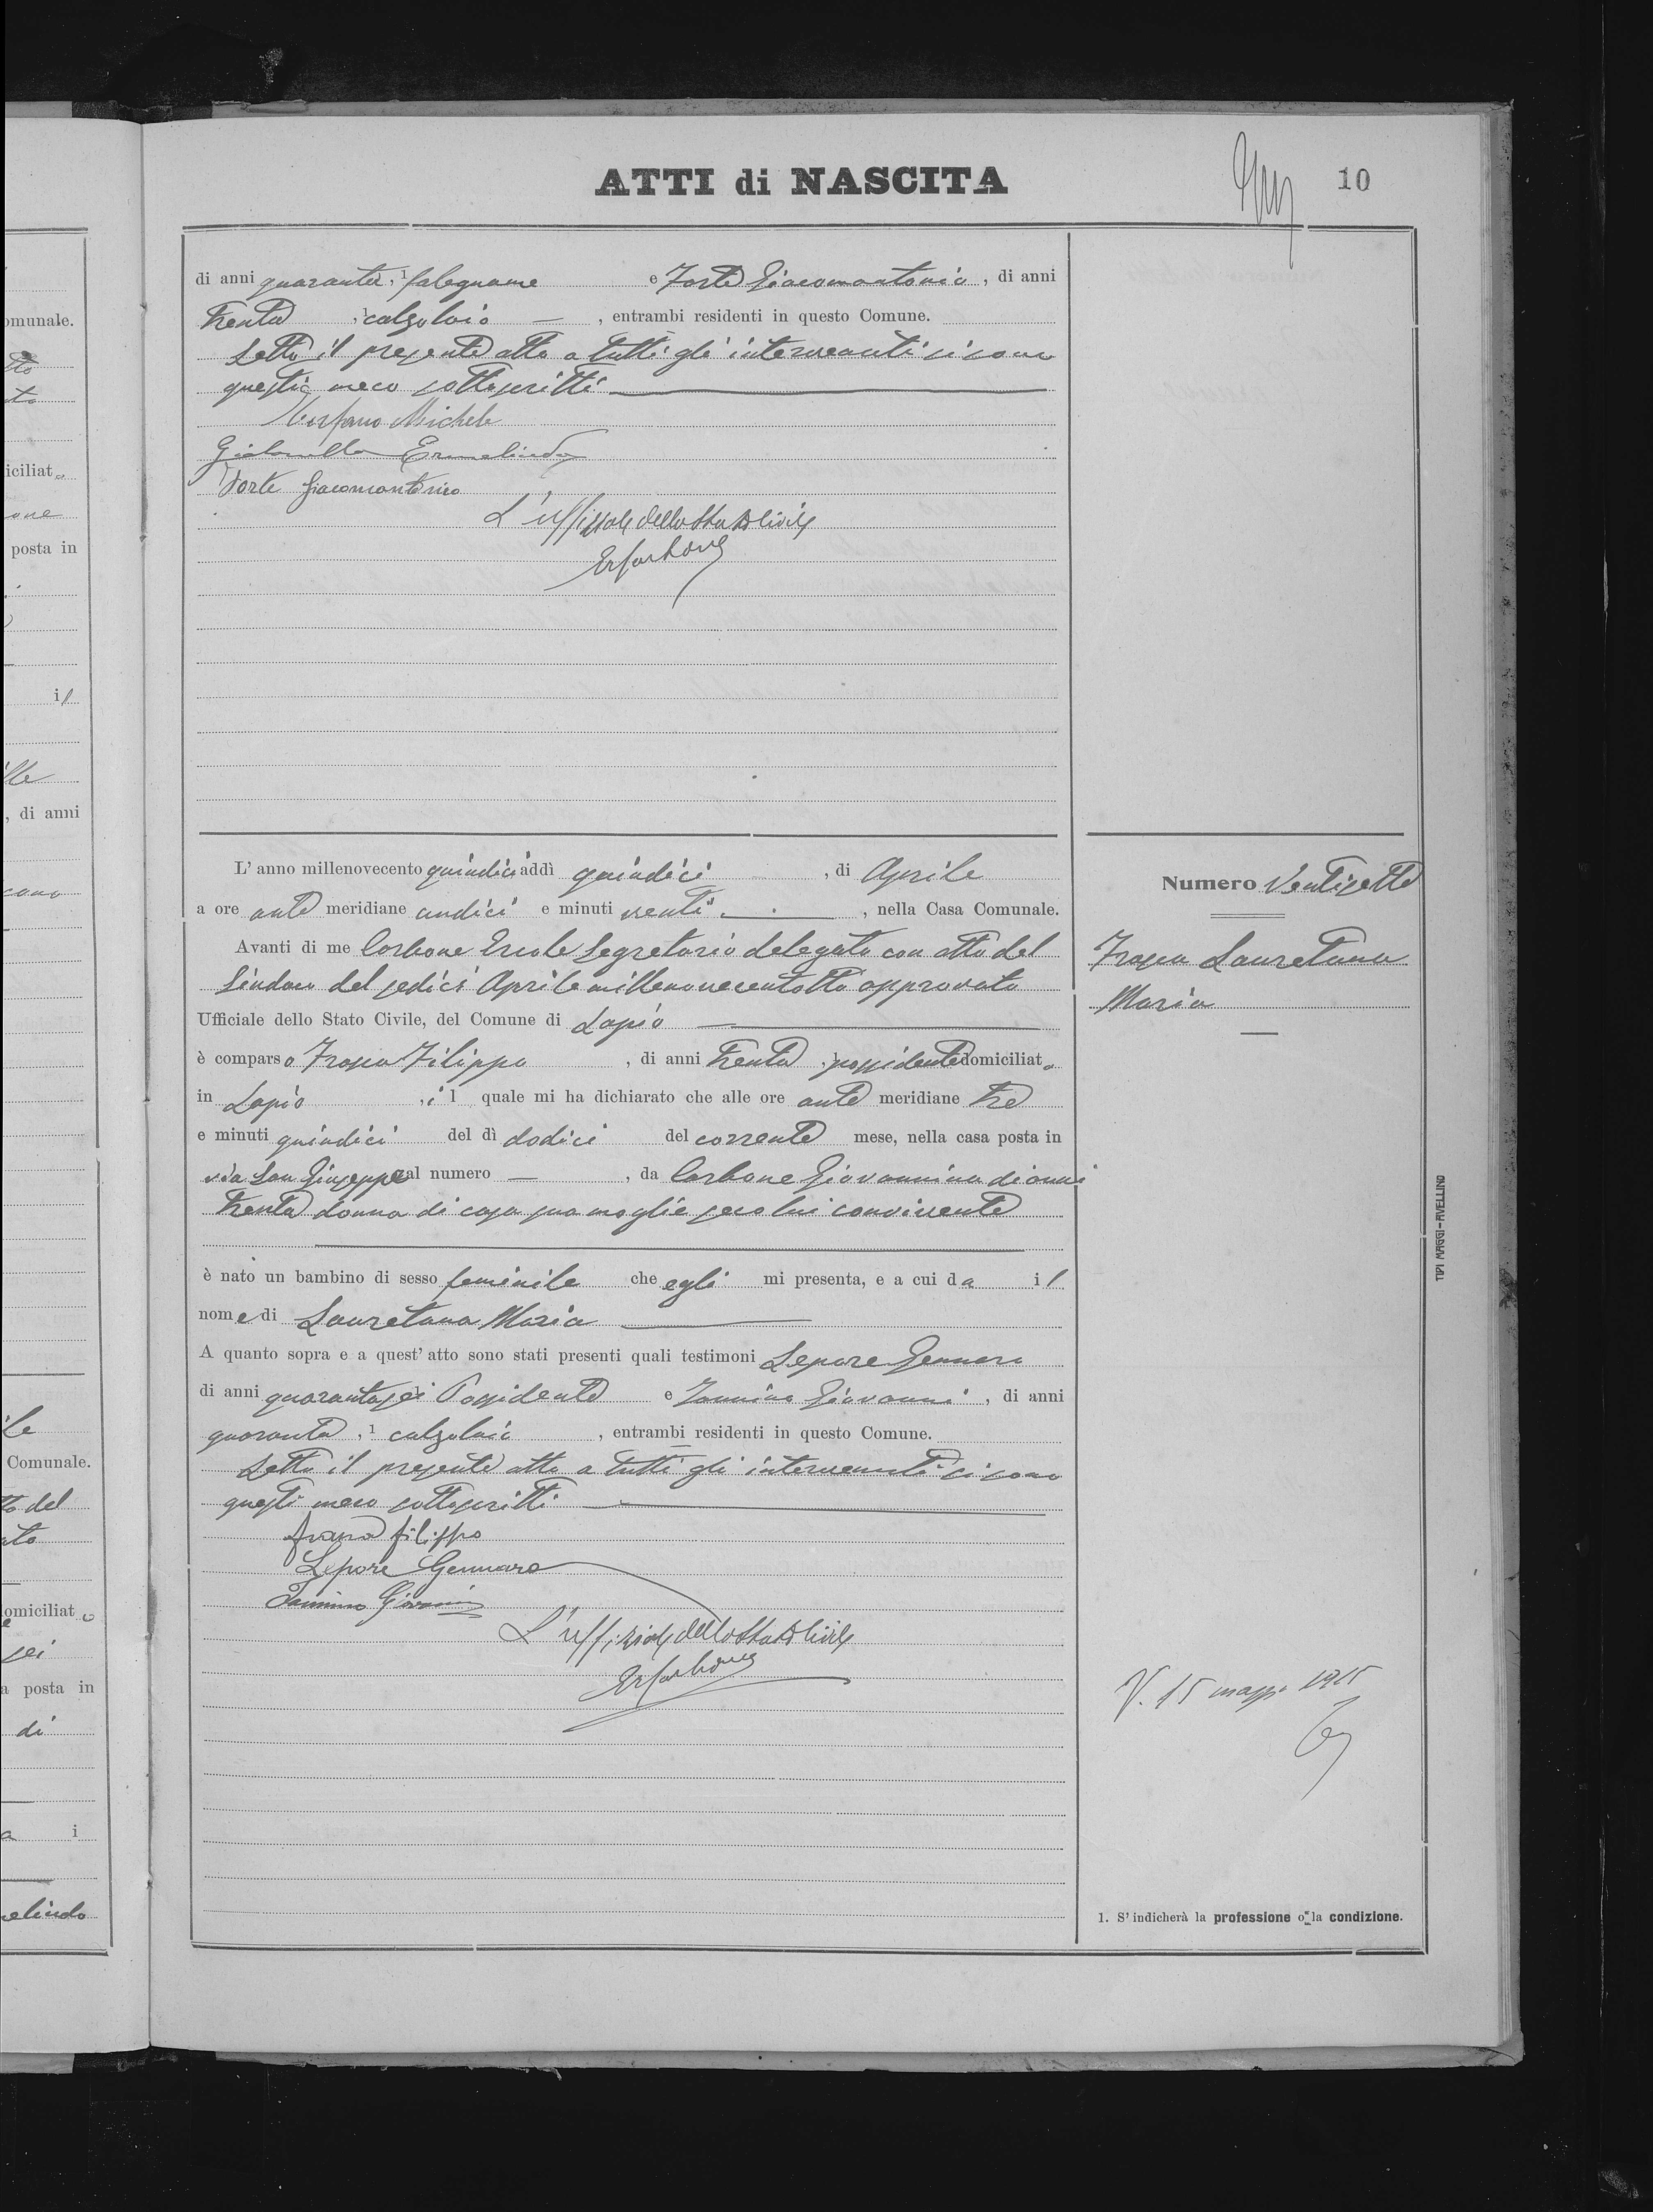 ATTI di NASCITA
10
di anni quaranta, ¹ falegname e Forte Giacomantonio, di anni
trenta, ¹ calzolaio —, entrambi residenti in questo Comune.
Letto il presente atto a tutti gli intervenuti si sono
questi meco sottoscritti
Michele
Ermelinda
Forte Giacomantonio
L'uffiziale dello Stato Civile
ErCarbone
L'anno millenovecento quindici addì quindici, di Aprile
a ore ante meridiane undici e minuti venti, nella Casa Comunale.
Avanti di me Carbone Ercole Segretario delegato con atto del
Sindaco del sedici Aprile millenovecentotto approvato
Ufficiale dello Stato Civile, del Comune di Lapio
è comparso Filippo, di anni trenta, ¹ possidente domiciliato
in Lapio, il quale mi ha dichiarato che alle ore ante meridiane tre
e minuti quindici del dì dodici del corrente mese, nella casa posta in
via San Giuseppe al numero —, da Carbone Giovannina di anni
trenta donna di casa sua moglie seco lui convivente
è nato un bambino di sesso feminile che egli mi presenta, e a cui da il
nome di Lauretana Maria
A quanto sopra e a quest' atto sono stati presenti quali testimoni Lepore Gennaro
di anni quarantasei Possidente e Iannino Giovanni, di anni
quaranta, ¹ calzolaio, entrambi residenti in questo Comune.
Letto il presente atto a tutti gli intervenuti si sono
questi meco sottoscritti
Filippo
Lepore Gennaro
Iannino Giovanni
L'uffiziale dello Stato Civile
ErCarbone
Numero Ventisette
Lauretana
Maria
V. 15 maggio 1915
1. S' indicherà la professione o la condizione.
TIPI MAGGI-AVELLINO
omunale.
iciliat
posta in
il
, di anni
Comunale.
to del
omiciliat
sei
a posta in
di
a i
elinda